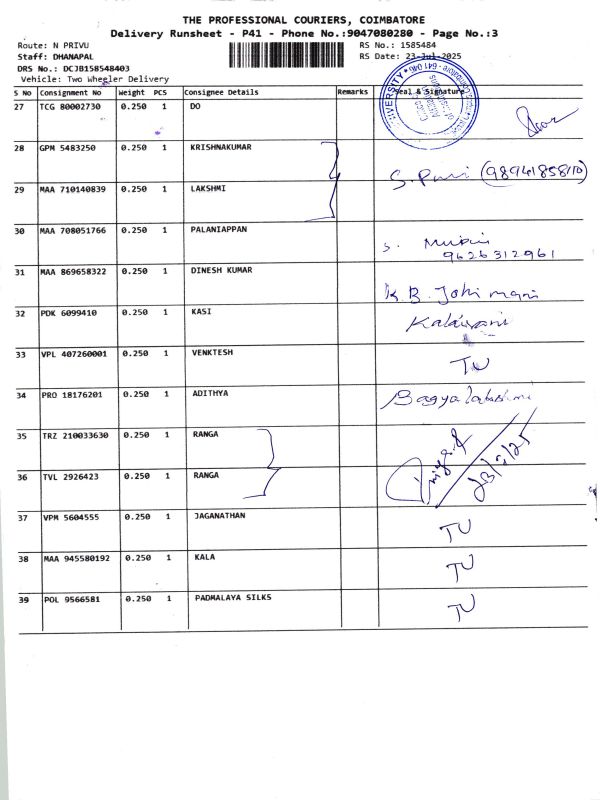 THE PROFESSIONAL COURIERS, COIMBATORE
Delivery Runsheet - P41 - Phone No.:9047080280 - Page No.:3
Route: N PRIVU
RS No.: 1585484
Staff: DHANAPAL
RS Date: 23-Jul-2025
DRS No.: DCJB158548403
Vehicle: Two Wheeler Delivery
S No Consignment No Weight PCS Consignee Details Remarks Seal & Signature
27 TCG 80002730 0.250 1 DO
28 GPM 5483250 0.250 1 KRISHNAKUMAR
(9894185810)
29 MAA 710140839 0.250 1 LAKSHMI
30 MAA 708051766 0.250 1 PALANIAPPAN
9626312961
31 MAA 869658322 0.250 1 DINESH KUMAR
K.B. Johi mani
32 PDK 6099410 0.250 1 KASI Kalaivani
33 VPL 407260001 0.250 1 VENKTESH TU
34 PRO 18176201 0.250 1 ADITHYA Bagyalakshmi
35 TRZ 210033630 0.250 1 RANGA
23/7/25
36 TVL 2926423 0.250 1 RANGA
37 VPM 5604555 0.250 1 JAGANATHAN TU
38 MAA 945580192 0.250 1 KALA TU
39 POL 9566581 0.250 1 PADMALAYA SILKS TU